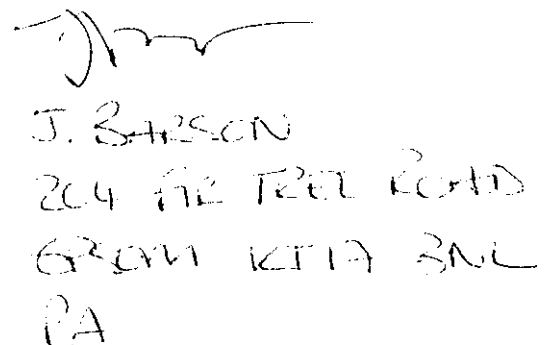 J. BARSON
204 FIR TREE ROAD
EPSOM KT17 3NL
PA